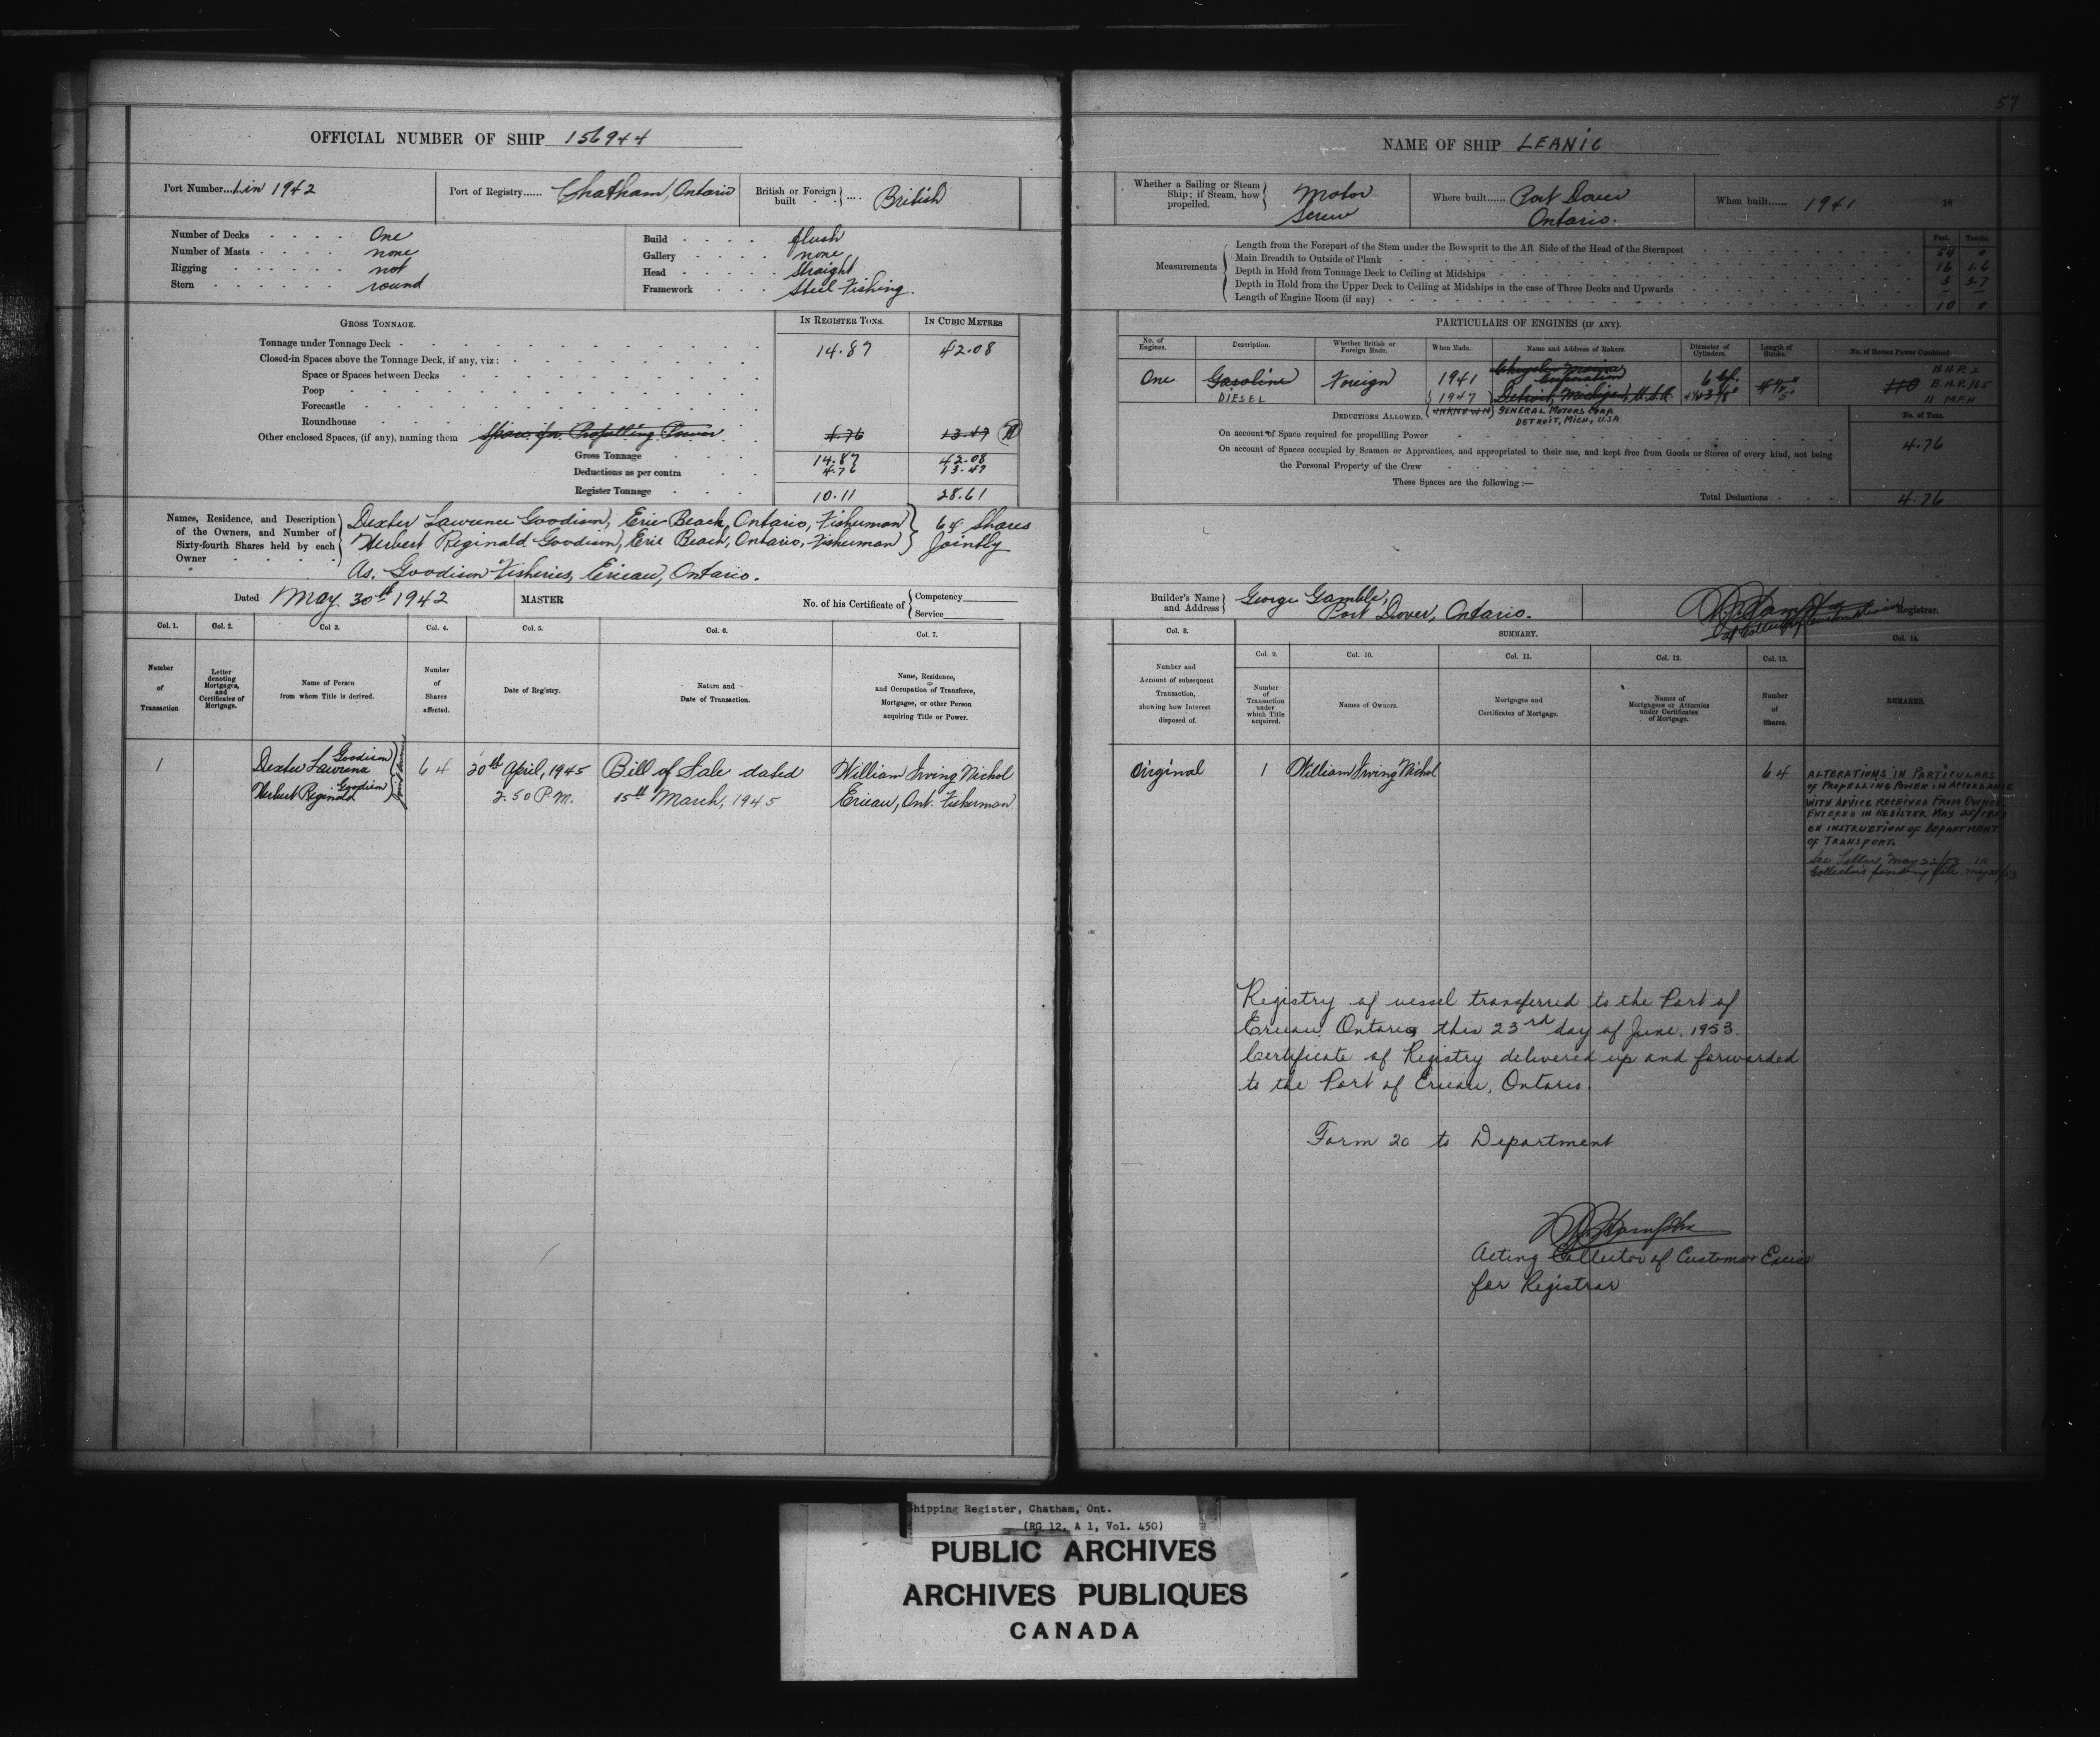 57
OFFICIAL NUMBER OF SHIP 156944
Port Number... 1 in 1942
Port of Registry...... Chatham, Ontario
British or Foreign built .... British
Number of Decks One
Number of Masts none
Rigging not
Stern round
Build flush
Gallery none
Head Straight
Framework Steel Fishing.
GROSS TONNAGE.
IN REGISTER TONS.
IN CUBIC METRES
Tonnage under Tonnage Deck 14.87 42.08
Closed-in Spaces above the Tonnage Deck, if any, viz:
Space or Spaces between Decks
Poop
Forecastle
Roundhouse
Other enclosed Spaces, (if any), naming them Space for Propelling Power 4.76 13.47
Gross Tonnage 14.87 42.08
Deductions as per contra 4.76 13.47
Register Tonnage 10.11 28.61
Names, Residence, and Description of the Owners, and Number of Sixty-fourth Shares held by each Owner
Dexter Lawrence Goodison, Erie Beach, Ontario, Fisherman
Herbert Reginald Goodison, Erie Beach, Ontario, Fisherman
64 Shares Jointly
As. Goodison Fisheries, Erieau, Ontario.
Dated May 30th 1942
MASTER
No. of his Certificate of
Competency
Service
Col. 1. Col. 2. Col 3. Col. 4. Col. 5. Col. 6. Col. 7.
Number of Transaction
Letter denoting Mortgages, and Certificates of Mortgage.
Name of Person from whom Title is derived.
Number of Shares affected.
Date of Registry.
Nature and Date of Transaction.
Name, Residence, and Occupation of Transferee, Mortgagee, or other Person acquiring Title or Power.
1
Dexter Lawrence Goodison
Herbert Reginald Goodison
64
30th April, 1945
2.50 P.M.
Bill of Sale dated
15th March, 1945
William Irving Nichol
Erieau, Ont. Fisherman
NAME OF SHIP LEANIC
Whether a Sailing or Steam Ship; if Steam, how propelled. Motor Screw
Where built...... Port Dover Ontario.
When built...... 1941
18
Measurements
Feet. Tenths.
Length from the Forepart of the Stem under the Bowsprit to the Aft Side of the Head of the Sternpost 54 0
Main Breadth to Outside of Plank 16 1.6
Depth in Hold from Tonnage Deck to Ceiling at Midships 3 3.7
Depth in Hold from the Upper Deck to Ceiling at Midships in the case of Three Decks and Upwards
Length of Engine Room (if any) 10 0
PARTICULARS OF ENGINES (IF ANY).
No. of Engines.
Description.
Whether British or Foreign Made.
When Made.
Name and Address of Makers.
Diameter of Cylinders.
Length of Stroke.
No. of Horses Power Combined
One
Gasoline
DIESEL
Foreign
1941
1947
UNKNOWN
Corporation
Detroit, Michigan, U.S.A.
GENERAL MOTORS CORP.
DETROIT, MICH., USA
110
B.H.P. 165
11 M.P.H
DEDUCTIONS ALLOWED.
No. of Tons.
On account of Space required for propelling Power 4.76
On account of Spaces occupied by Seamen or Apprentices, and appropriated to their use, and kept free from Goods or Stores of every kind, not being
the Personal Property of the Crew
These Spaces are the following:—
Total Deductions 4.76
Builder's Name and Address
George Gamble,
Port Dover, Ontario.
Registrar.
Col. 8.
SUMMARY.
Col. 9. Col. 10. Col. 11. Col. 12. Col. 13. Col. 14.
Number and Account of subsequent Transaction, showing how Interest disposed of.
Number of Transaction under which Title acquired.
Names of Owners.
Mortgages and Certificates of Mortgage.
Names of Mortgagees or Attornies under Certificates of Mortgage.
Number of Shares.
REMARKS.
Original
1
William Irving Nichol
64
ALTERATIONS IN PARTICULARS
OF PROPELLING POWER IN ACCORDANCE
WITH ADVICE RECEIVED FROM OWNER
ENTERED IN REGISTER MAY 25/1953
ON INSTRUCTION OF DEPARTMENT
OF TRANSPORT.
See Letter, May 22/53 in
Collector's pending file. May 25/53
Registry of vessel transferred to the Port of
Erieau, Ontario, this 23rd day of June, 1953.
Certificate of Registry delivered up and forwarded
to the Port of Erieau, Ontario.
Form 20 to Department
Acting Collector of Customs & Excise
for Registrar
Shipping Register, Chatham, Ont.
(RG 12, A 1, Vol. 450)
PUBLIC ARCHIVES
ARCHIVES PUBLIQUES
CANADA